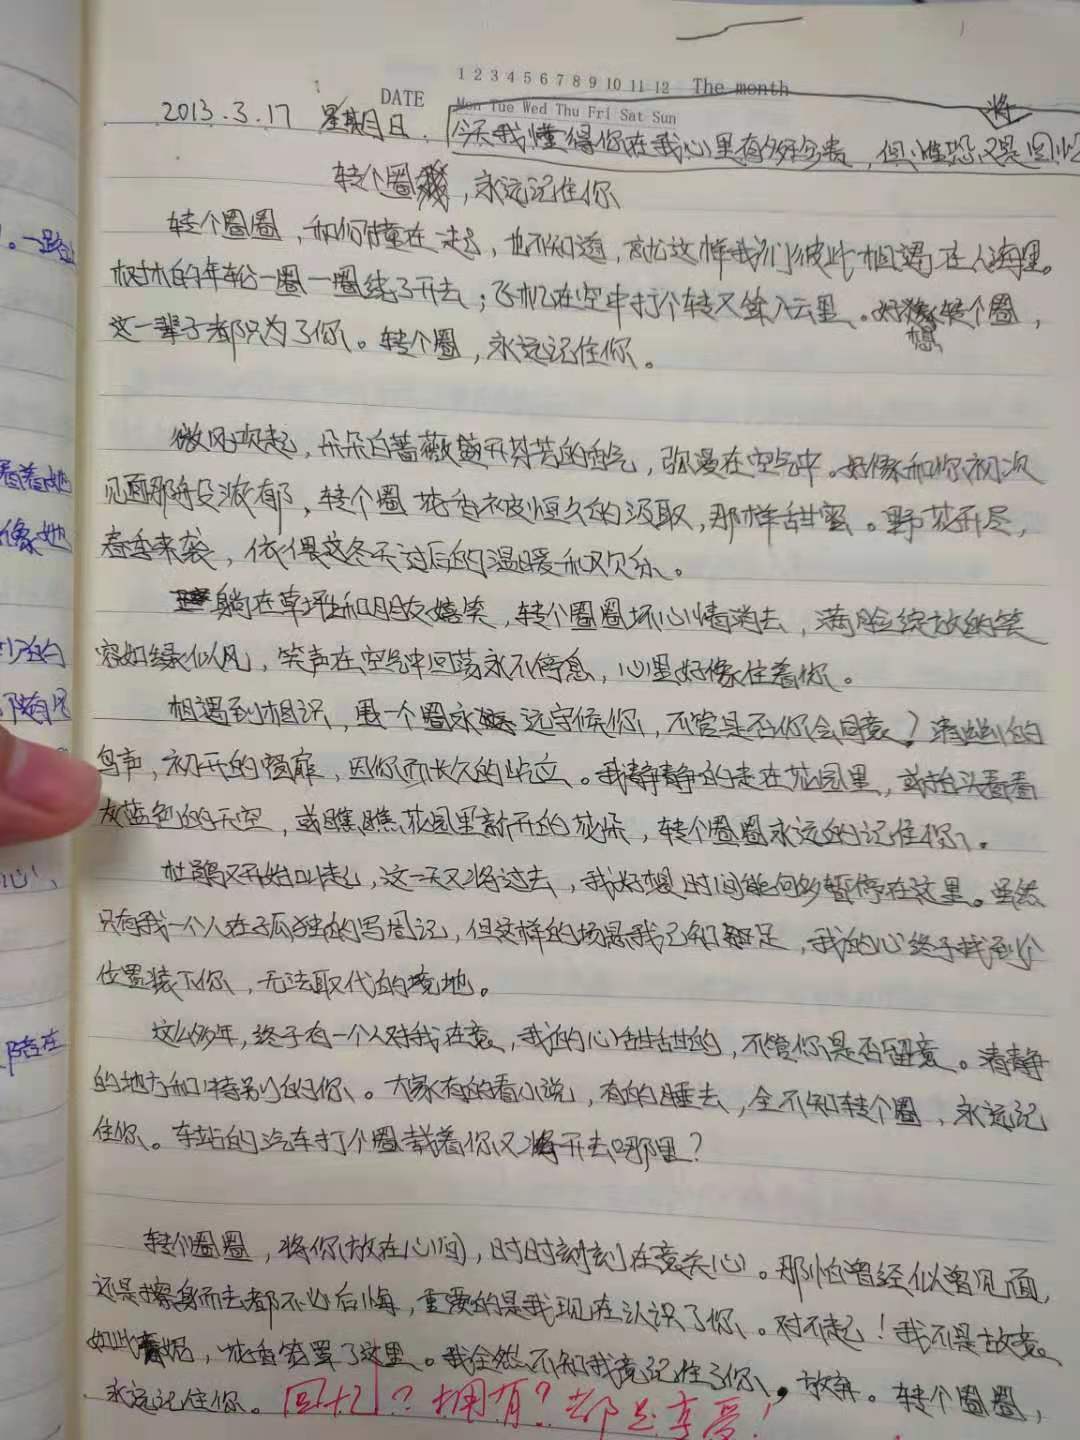 1 2 3 4 5 6 7 8 9 10 11 12 The month
DATE
Mon Tue Wed Thu Fri Sat Sun
2013.3.17 星期日. 今天我懂得你在我心里有多珍贵，但惟恐又是回忆
将
转个圈，永远记住你
转个圈圈，和你撞在一起，也不知道，高忙这样我们彼此相遇在人海里。
树木的年轮一圈一圈绕了开去；飞机在空中打个转又耸入云里。好想转个圈，
这一辈子都只为了你。转个圈，永远记住你。
微风吹起，朵朵白蔷薇盛开芬芳的香气，弥漫在空气中。好像和你初次
见面那段浓郁，转个圈花香被恒久的汲取，那样甜蜜。野花开尽，
春季来袭，依偎这冬天过后的温暖和欢乐。
躺在草坪上和朋友嬉笑，转个圈圈坏心情消去，满脸绽放的笑
容如缘似风，笑声在空气中回荡永不停息，心里好像住着你。
相遇到相识，画一个圈永远守候你，不管是否你会同意？清幽的
鸟声，初开的嫣扉，因你而长久的屹立。我静静的走在花园里，或抬头看看
灰蓝色的天空，或瞧瞧花园里新开的花朵，转个圈圈永远的记住你。
杜鹃又开始叫起，这一天又将过去，我好想时间能何多暂停在这里。虽然
只有我一个人在孤独的写周记，但这样的场景我已知足，我的心终于找到个
位置装下你，无法取代的境地。
这么多年，终于有一个人对我在意，我的心甜甜的，不管你是否留意。清静
的地方和特别的你。大家有的看小说，有的睡去，全不知转个圈，永远记
住你。车站的汽车打个圈载着你又将开去哪里？
转个圈圈，将你放在心间，时时刻刻在意关心。那怕曾经似曾见面，
还是擦身而去都不必后悔，重要的是我现在认识了你。对不起！我不是故意
如此，花香笼罩了这里。我全然不知我竟记住了你，放弃。转个圈圈，
永远记住你。回忆？拥有？都是享受！